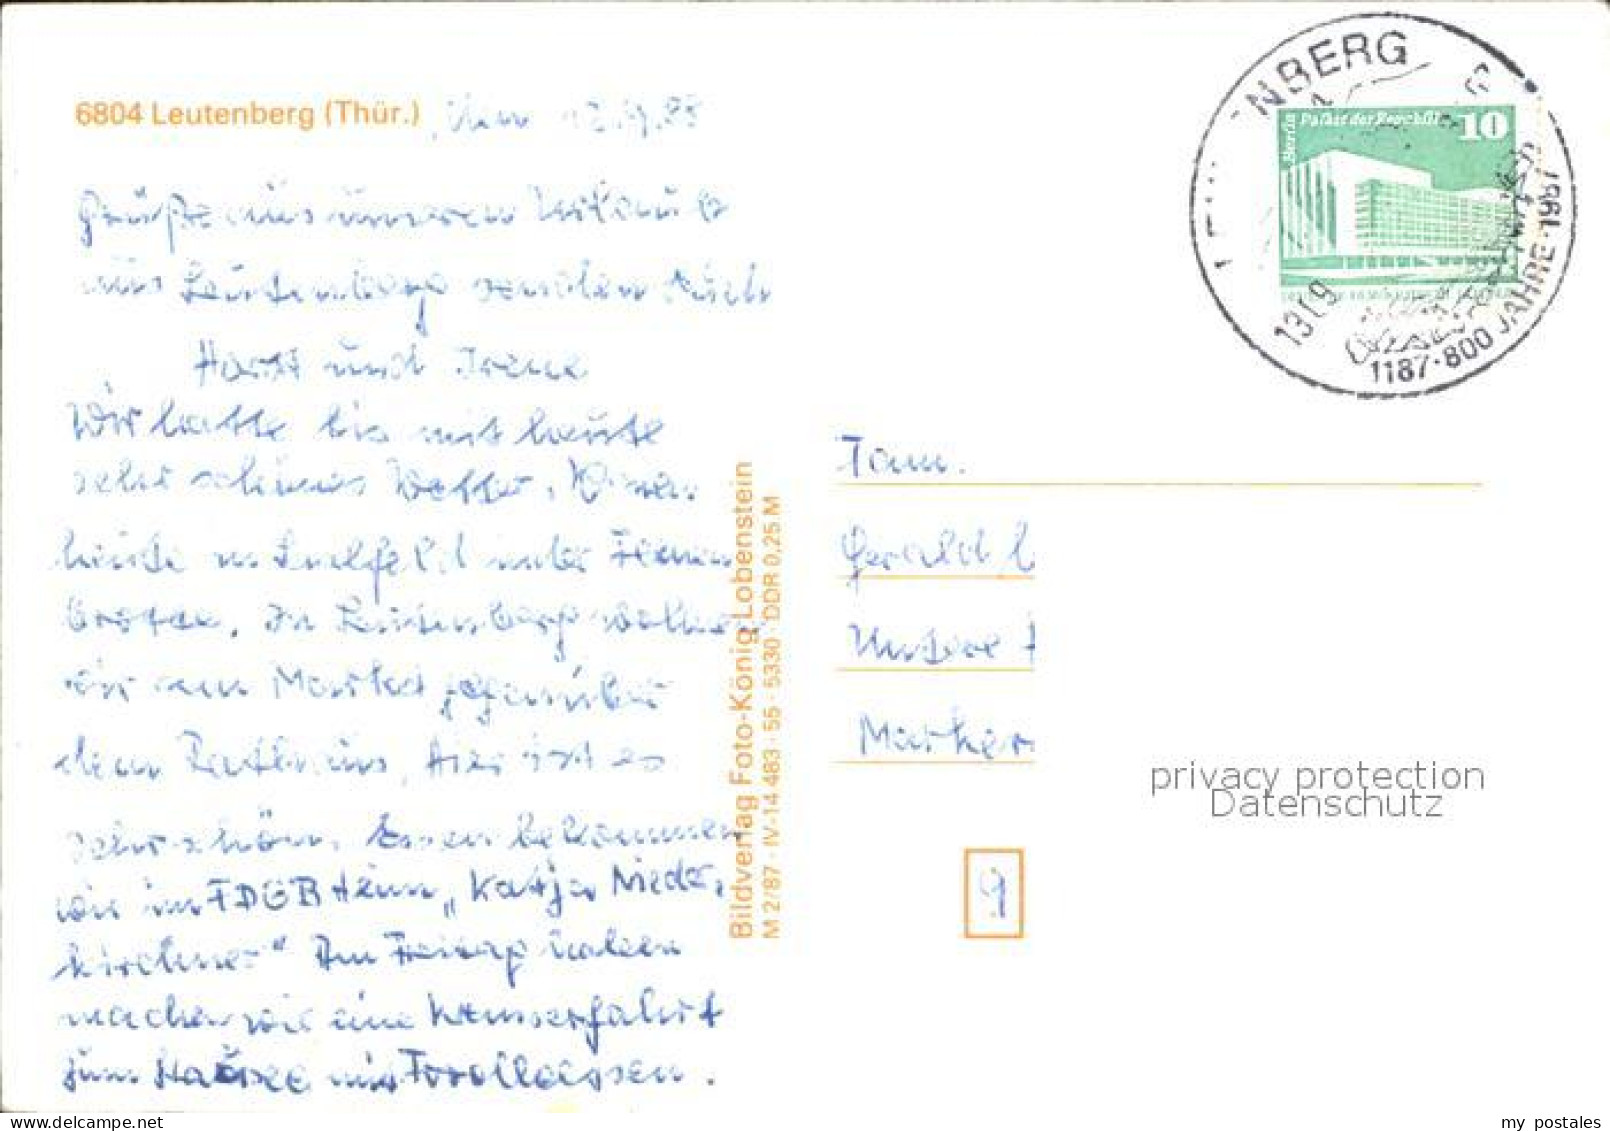 6804 Leutenberg (Thür.)
Grüße aus unseren Urlaub
aus Leutenberg senden Euch
Horst und Irene
Wir hatte bis mit heute
sehr schönes Wetter.
heute in Saalfeld in der Feen
Grotten. In Leutenberg wohnen
wir am Markt gegenüber
dem Rathaus. Hier ist es
sehr schön. Essen bekommen
wir im FDGB Heim "Katja Nieder
kirchner" Am Freitag
machen wir eine Wasserfahrt
zum mit Forellenessen.
Bildverlag Foto-König Lobenstein
M 2/87 · IV-14 483 · 55 · 5330 · DDR 0,25 M
NBERG
Berlin Palast der Republik 10
1187·800 JAHRE·1987
Fam.
Gerald
Untere
Marker
9
privacy protection
Datenschutz
my postales